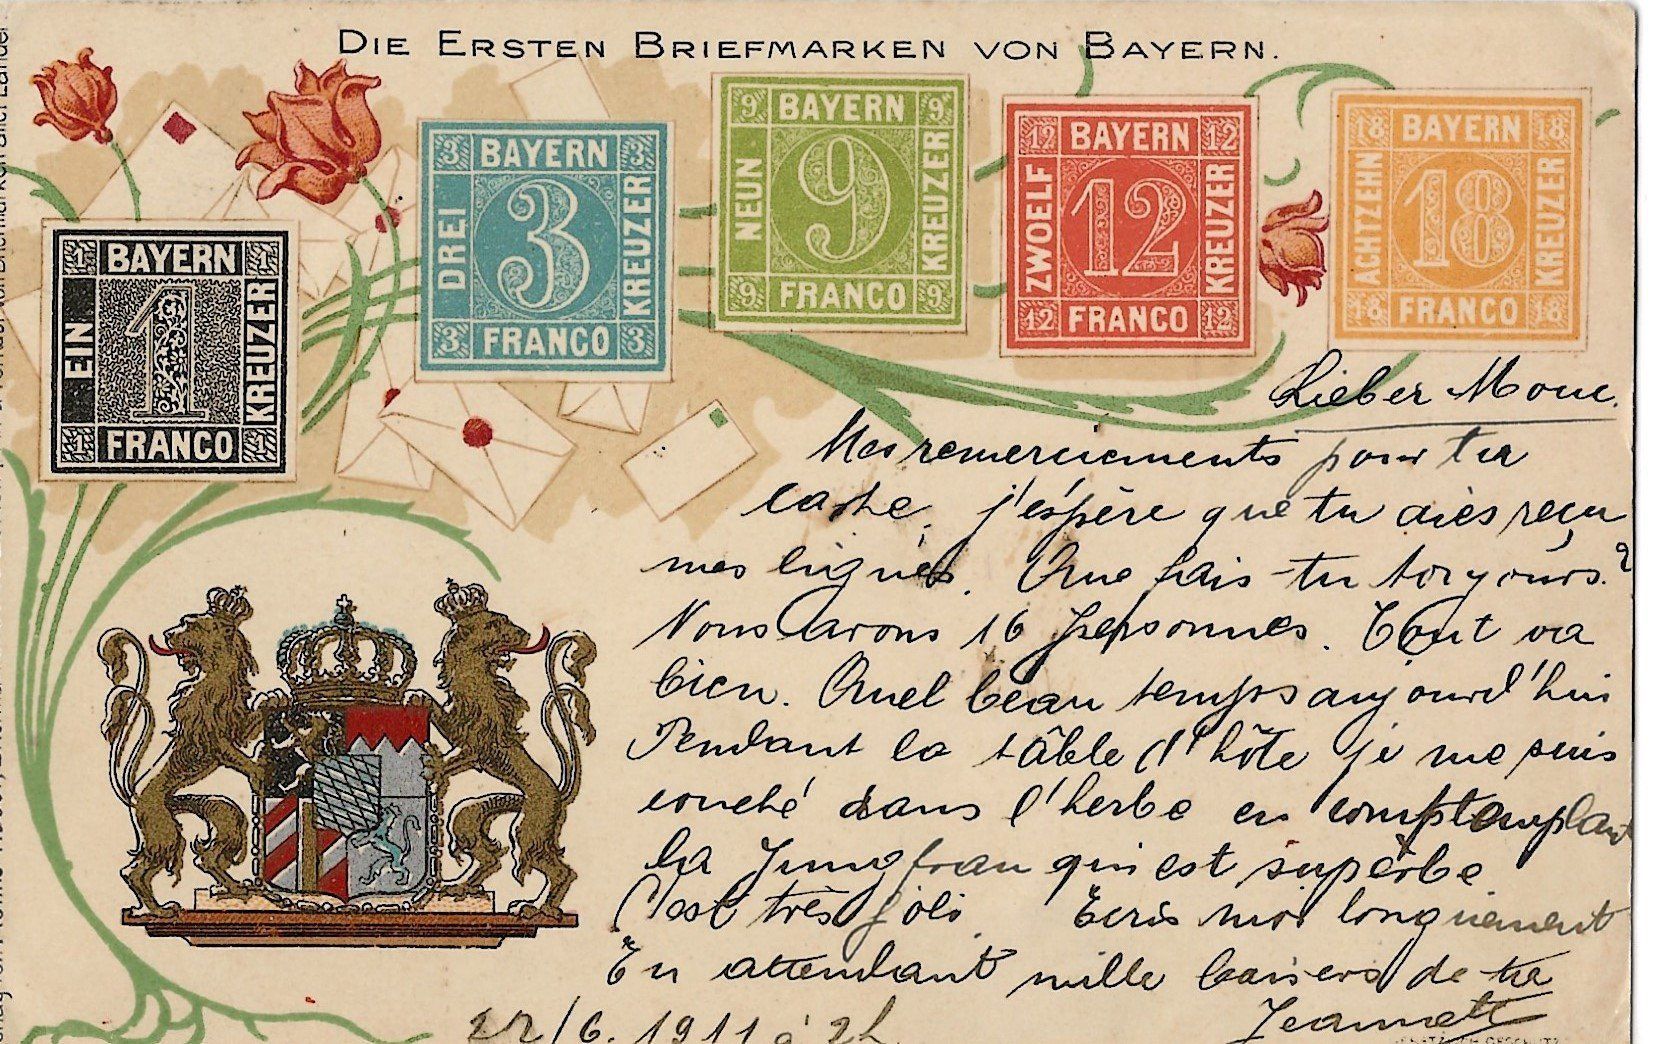 DIE ERSTEN BRIEFMARKEN VON BAYERN.
1 BAYERN 1
EIN 1 KREUZER
1 FRANCO 1
3 BAYERN 3
DREI 3 KREUZER
3 FRANCO 3
9 BAYERN 9
NEUN 9 KREUZER
9 FRANCO 9
12 BAYERN 12
ZWOELF 12 KREUZER
12 FRANCO 12
18 BAYERN 18
ACHTZEHN 18 KREUZER
18 FRANCO 18
Lieber Mouc.
Mes remerciements pour ta
carte. j'éspère que tu aiès reçu
mes lignes. Que fais-tu toryours?
Nous avons 16 personnes. Tout va
bien. Quel beau temps aujourd'hui
Pendant la tâble d'hôte je me suis
couché dans l'herbe en comptemplant
la Jungfrau qui est supèrbe
C'est très joli. Ecris moi longuement
En attendant mille baisers de ta
Jeannette
22/6. 1911 à 2h.